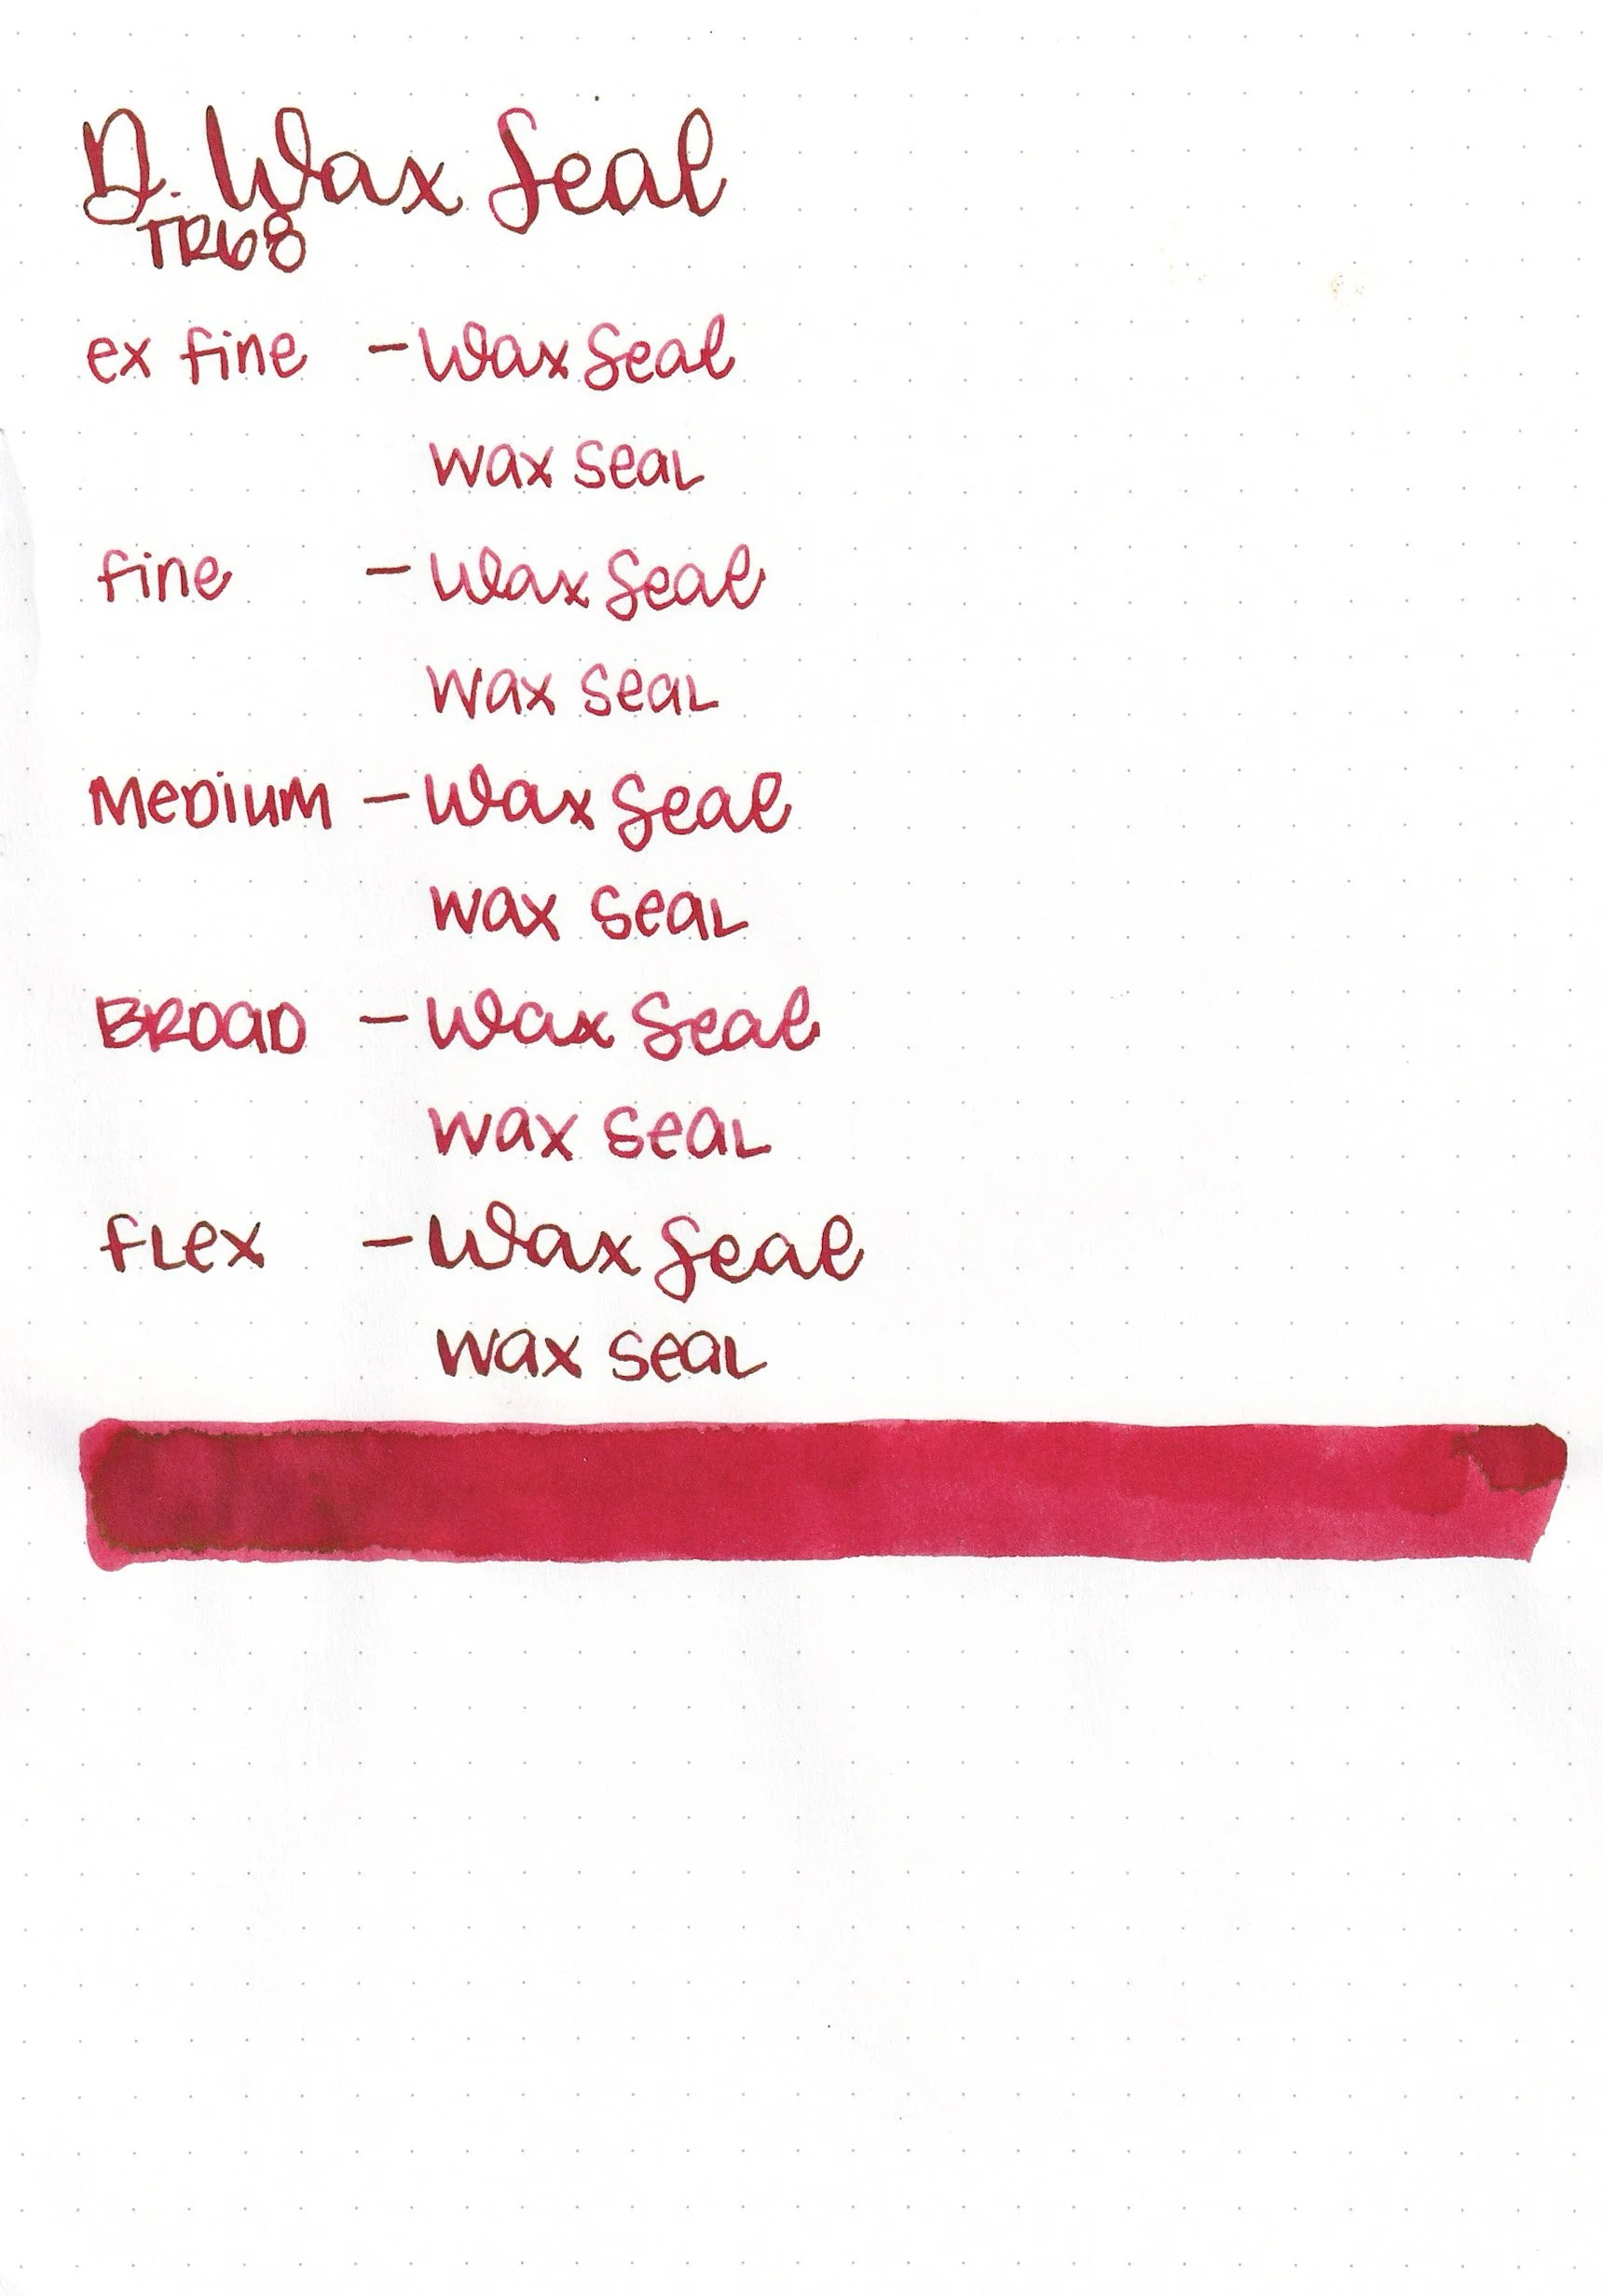 D. Wax Seal
TR68
ex fine - Wax Seal
wax seal
fine - Wax Seal
wax seal
Medium - Wax Seal
wax seal
BROAD - Wax Seal
wax seal
flex - Wax Seal
wax seal